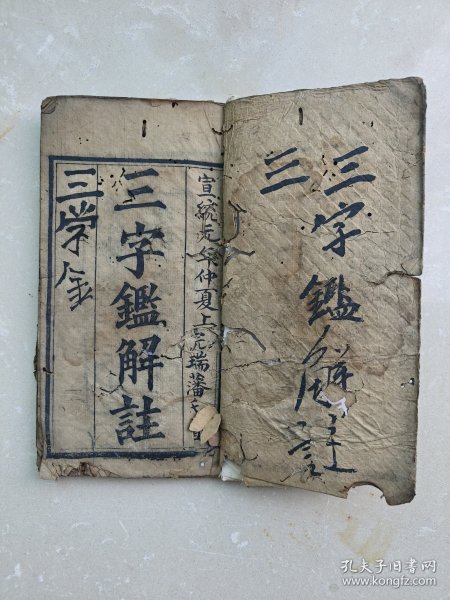 三字鑑解註
三
宣統元年仲夏上浣瑞藩
三字鑑解註
三学金
孔夫子旧书网
www.kongfz.com